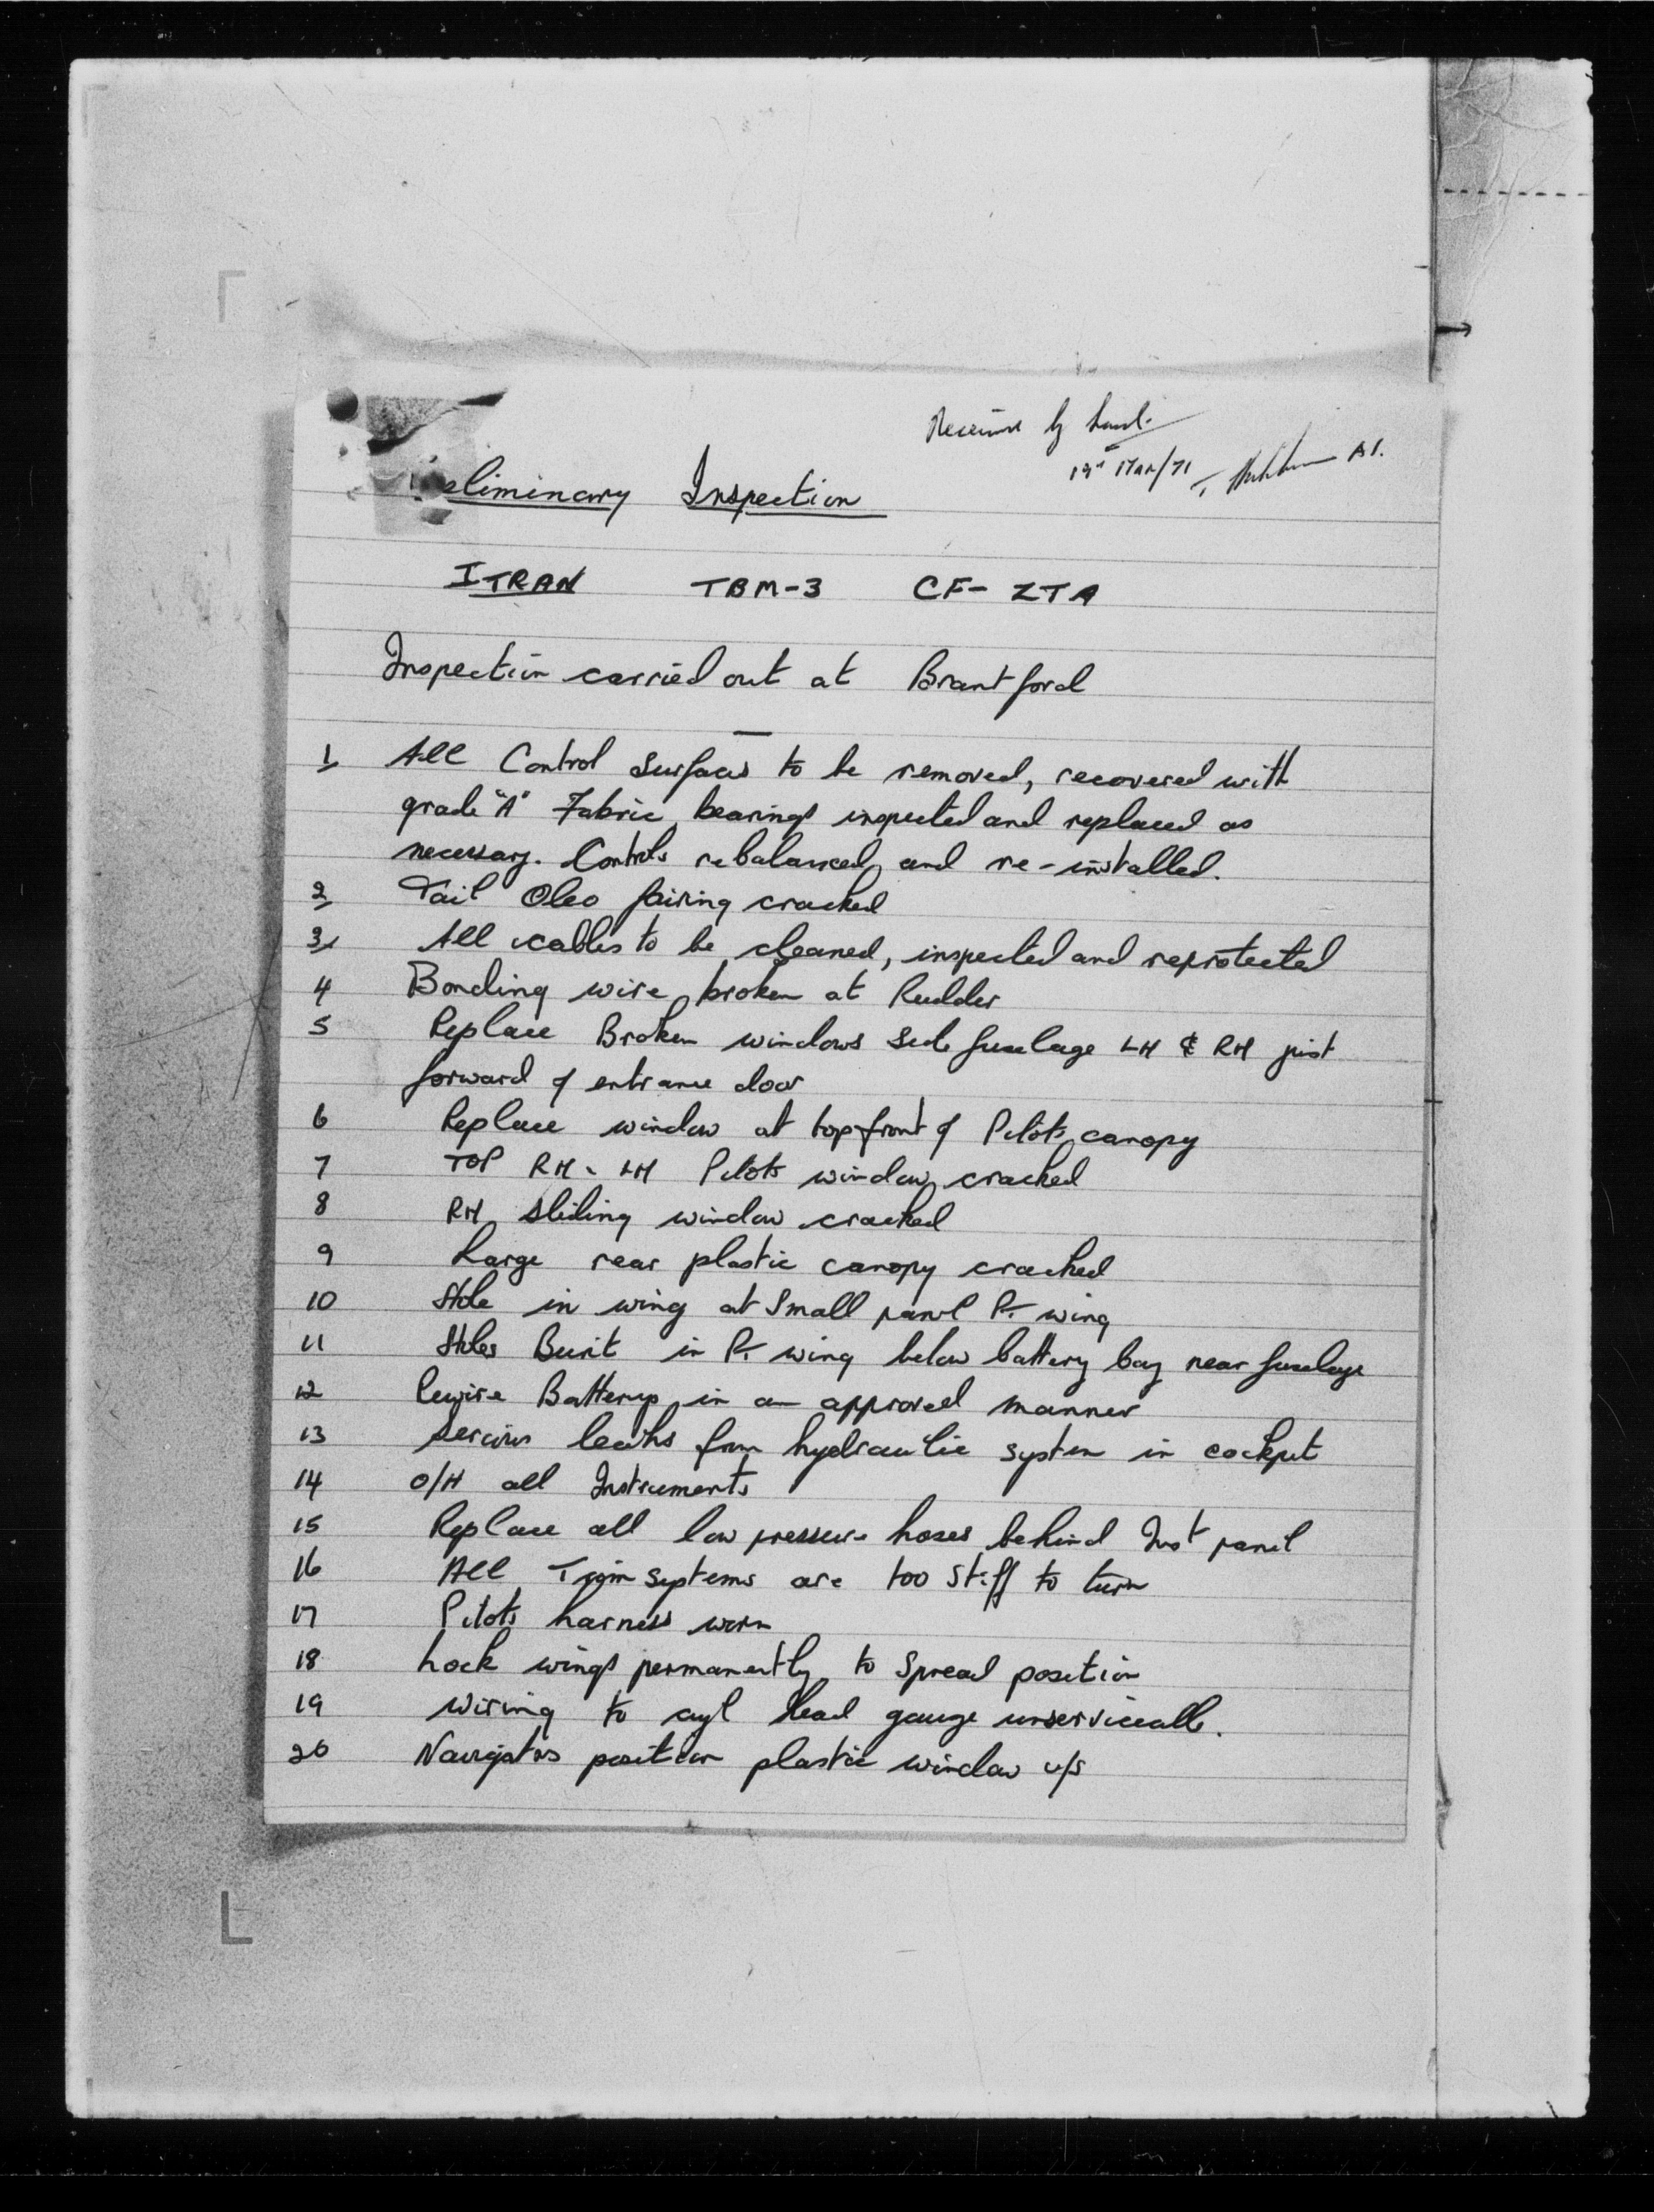 Received by hand.
19th Mar/71 AI.
Preliminary Inspection
ITRAN TBM-3 CF-ZTA
Inspection carried out at Brantford
1 All Control Surfaces to be removed, recovered with
grade "A" Fabric, bearings inspected and replaced as
necessary. Controls rebalanced, and re-installed.
2 Tail Oleo fairing cracked
3 All cables to be cleaned, inspected and reprotected
4 Bonding wire broken at Rudder
5 Replace Broken windows side fuselage LH & RH just
forward of entrance door
6 Replace window at top front of Pilots canopy
7 TOP RH & LH Pilots window cracked
8 RH sliding window cracked
9 Large rear plastic canopy cracked
10 Hole in wing at Small panel Pt wing
11 Holes Burnt in Pt wing below battery bay near fuselage
12 Rewire Batterys in an approved manner
13 Serious leaks from hydraulic system in cockpit
14 O/H all Instruments
15 Replace all low pressure hoses behind Inst panel
16 All Trim Systems are too stiff to turn
17 Pilots harness worn
18 Lock wings permanently to Spread position
19 Wiring to cyl head gauge unserviceable.
20 Navigators position plastic window u/s